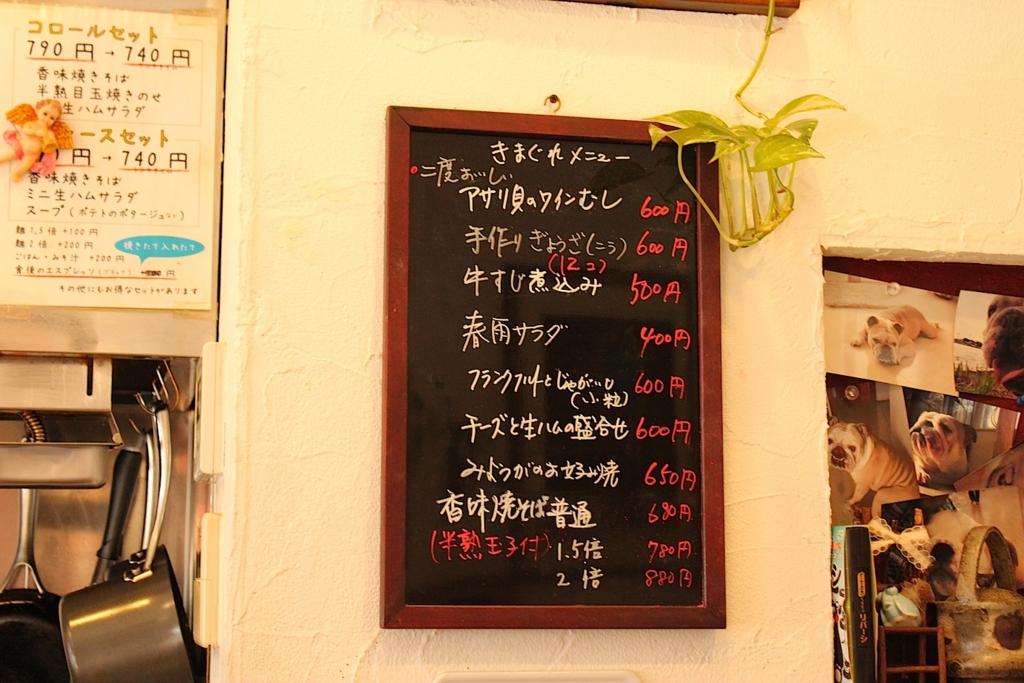 コロールセット
790 円 → 740 円
香味焼きそば
半熟目玉焼きのせ
生ハムサラダ
ースセット
円 → 740 円
香味焼きそば
ミニ生ハムサラダ
スープ(ポテトのポタージュなど)
麺 1.5 倍 +100 円
麺 2 倍 +200 円
ごはん・みそ汁 +200 円
食後のエスプレッソ(ブラック) 円
焼きたて入れたて
その他にもお得なセットがあります
きまぐれメニュー
・二度おいしい
アサリ貝のワインむし 600円
手作りぎょうざ(こう) 600円
(12コ)
牛すじ煮込み 500円
春雨サラダ 400円
フランクフルトとじゃがいも 600円
(小粒)
チーズと生ハムの盛合せ 600円
みょうがのお好み焼 650円
香味焼そば普通 680円
(半熟玉子付) 1.5倍 780円
2倍 880円
リバーシ